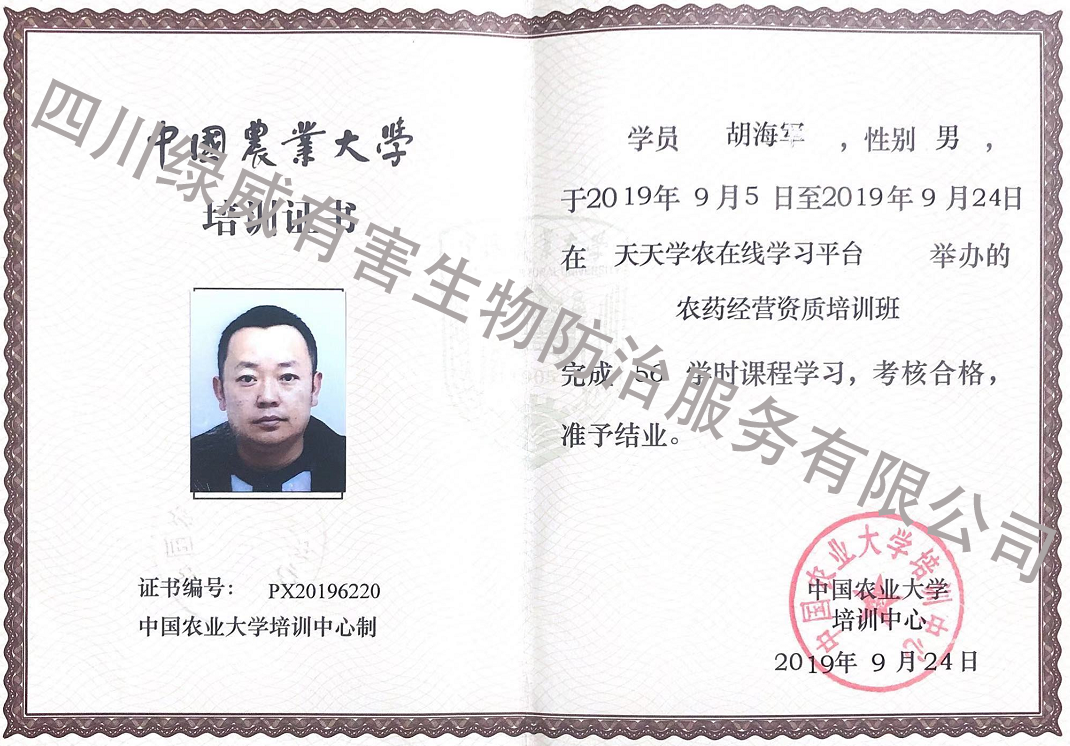 中国農業大學
培训证书
证书编号： PX20196220
中国农业大学培训中心制
学员 胡海军 ，性别 男 ，
于2019年 9月5 日至2019年9 月24日
在 天天学农在线学习平台 举办的
农药经营资质培训班
完成 56 学时课程学习，考核合格，
准予结业。
中国农业大学培训中心
中国农业大学
培训中心
2019年 9 月 24日
四川绿威有害生物防治服务有限公司